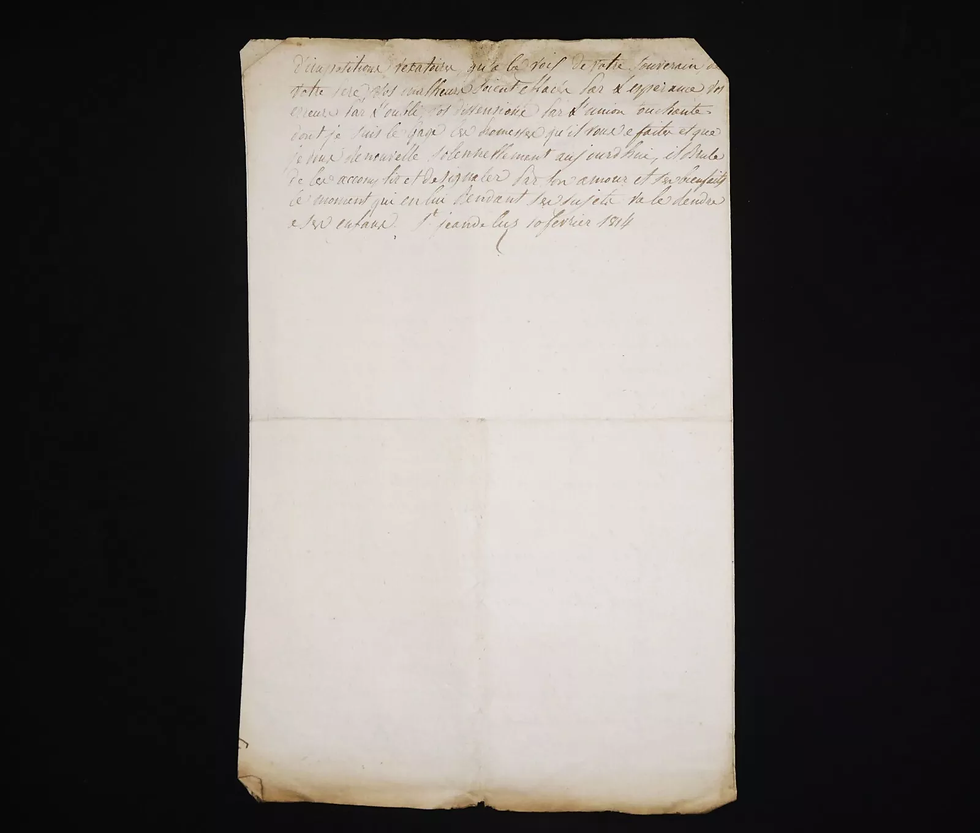 d'impositions vexatoires qu'a la voix de votre souverain de
votre pere, vos malheurs soient effacés par l'esperance vos
erreurs par l'oubli, vos dissensions par l'union touchante
dont je suis le gage les promesses qu'il vous a faites et que
je vous renouvelle solennellement aujourd'hui, il brule
de les accomplir et de signaler par son amour et ses bienfaits
le moment qui en lui rendant ses sujets va le rendre
a ses enfans. St jean de luz 10 fevrier 1814